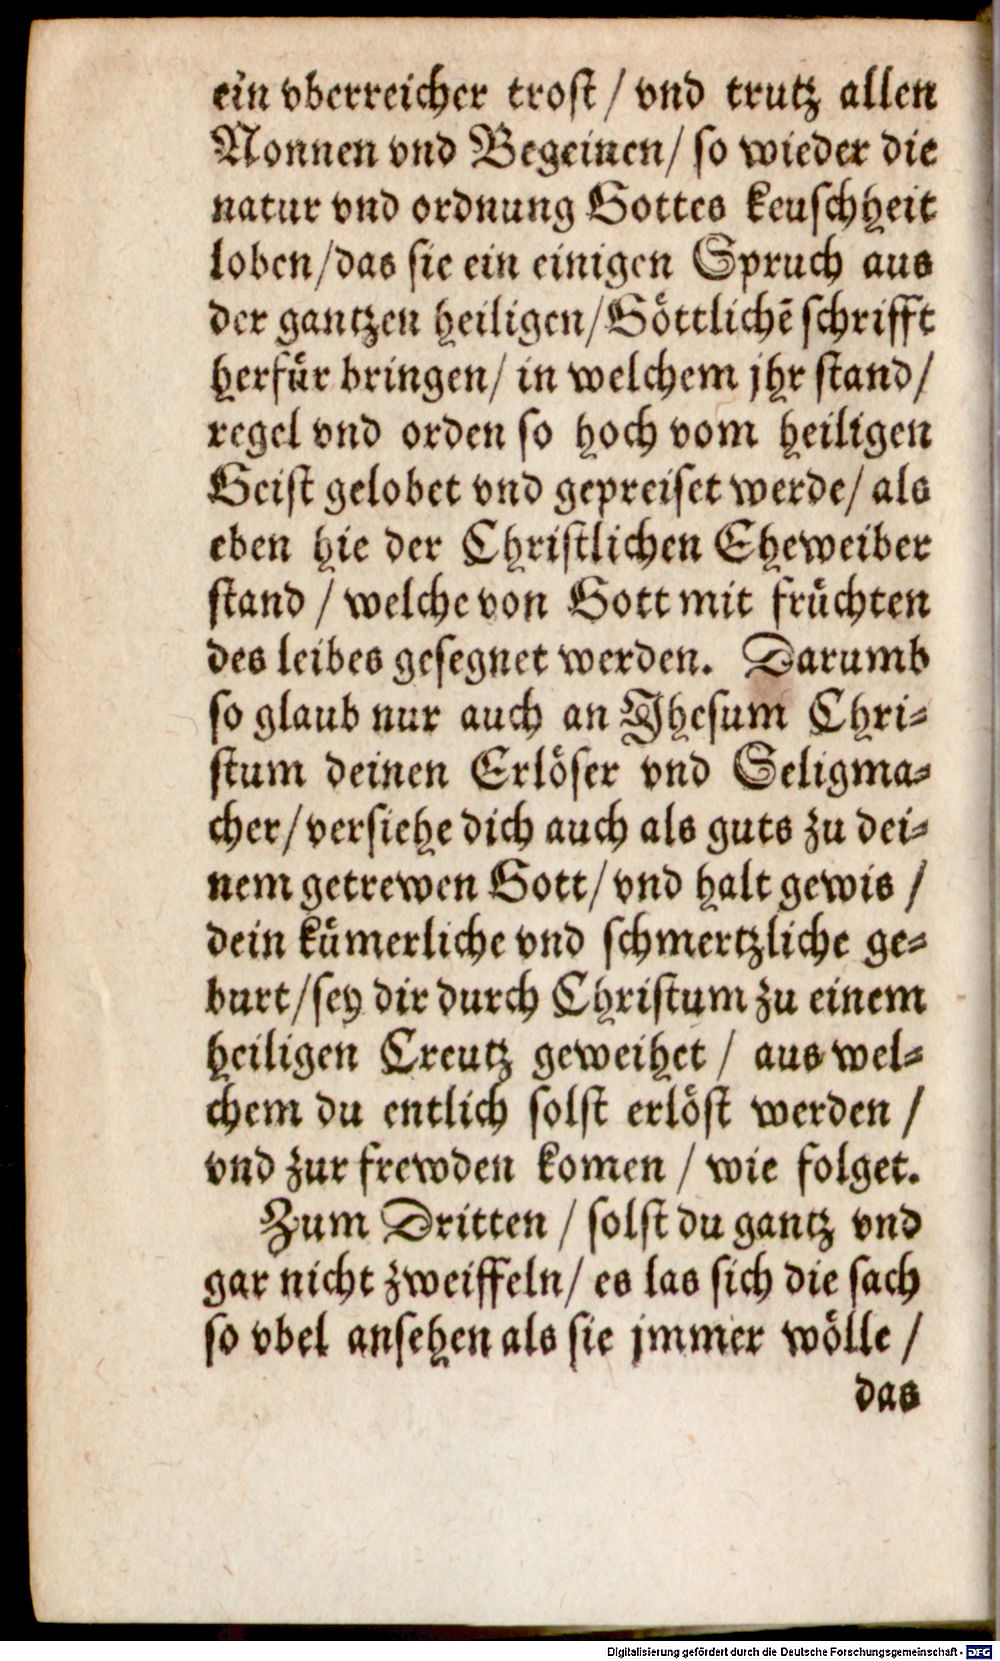 ein vberreicher trost / vnd trutz allen
Nonnen vnd Begeinen / so wieder die
natur vnd ordnung Gottes keuschheit
loben / das sie ein einigen Spruch aus
der gantzen heiligen / Göttlichē schrifft
herfür bringen / in welchem jhr stand /
regel vnd orden so hoch vom heiligen
Geist gelobet vnd gepreiset werde / als
eben hie der Christlichen Eheweiber
stand / welche von Gott mit früchten
des leibes gesegnet werden. Darumb
so glaub nur auch an Jhesum Chri⸗
stum deinen Erlöser vnd Seligma⸗
cher / versiehe dich auch als guts zu dei⸗
nem getrewen Gott / vnd halt gewis /
dein kümerliche vnd schmertzliche ge⸗
burt / sey dir durch Christum zu einem
heiligen Creutz geweihet / aus wel⸗
chem du entlich solst erlöst werden /
vnd zur frewden komen / wie folget.
Zum Dritten / solst du gantz vnd
gar nicht zweiffeln / es las sich die sach
so vbel ansehen als sie jmmer wölle /
das
Digitalisierung gefördert durch die Deutsche Forschungsgemeinschaft - DFG